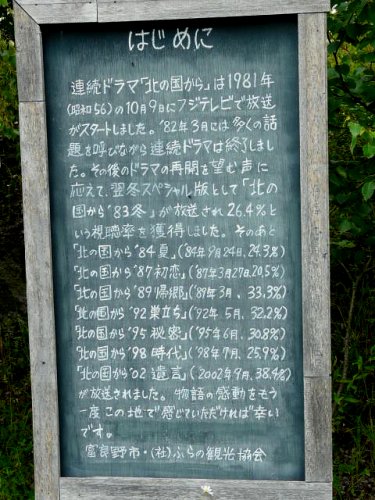 はじめに
連続ドラマ「北の国から」は1981年
(昭和56)の10月9日にフジテレビで放送
がスタートしました。'82年3月には多くの話
題を呼びながら連続ドラマは終了しまし
た。その後のドラマの再開を望む声に
応えて、翌冬スペシャル版として「北の
国から'83冬」が放送され26.4%と
いう視聴率を獲得しました。そのあと
「北の国から'84夏」('84年9月24日、24.3%)
「北の国から'87初恋」('87年3月27日、20.5%)
「北の国から'89帰郷」('89年3月、33.3%)
「北の国から'92巣立ち」('92年5月、32.2%)
「北の国から'95秘密」('95年6月、30.8%)
「北の国から'98時代」('98年7月、25.9%)
「北の国から'02遺言」(2002年9月、38.4%)
が放送されました。物語の感動をもう
一度この地で感じていただければ幸い
です。
富良野市・(社)ふらの観光協会